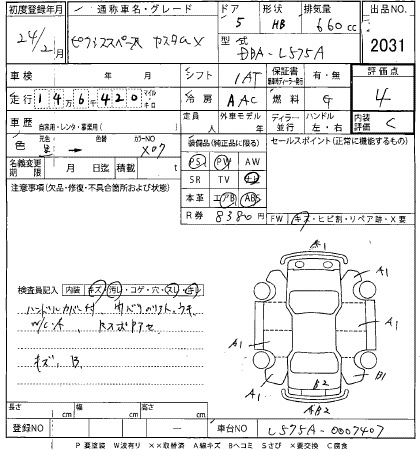 初度登録年月 通称車名・グレード ドア 形状 排気量 出品NO.
24/2月 5 HB 660cc 2031
型式 DBA-L575A
車検 年 月 シフト 1AT 保証書 有・無 評価点
走行 14万6千420 マイル キロ 冷房 AAC 燃料 G 4
車歴 自家用・レンタ・事業用( ) 定員 人 外車モデル 年 ディーラー 並行 ハンドル 左・右 内装評価 C
色 元色 → 色替 カラーNO X07 装備品(純正品に限る) セールスポイント(正常に機能するもの)
PS PW AW
名義変更期限 月 日迄 積載 t SR TV ナビ
注意事項(欠品・修復・不具合箇所および状態) 本革 エアB ABS
R券 8380円 FW キズ・ヒビ割・リペア跡・X要
A1
A1 A1
検査員記入 内装 キズ・汚れ・コゲ・穴・スレ・
ハンドルカバー付
W/C・A
A1 A1
キズ、B
A1 B1
B2
AB2
長さ cm 幅 cm 高さ cm
登録NO ー 車台NO L575A-0007407
P 要塗装 W波有り ××取替済 A線キズ Bヘコミ Sさび ×要交換 C腐食